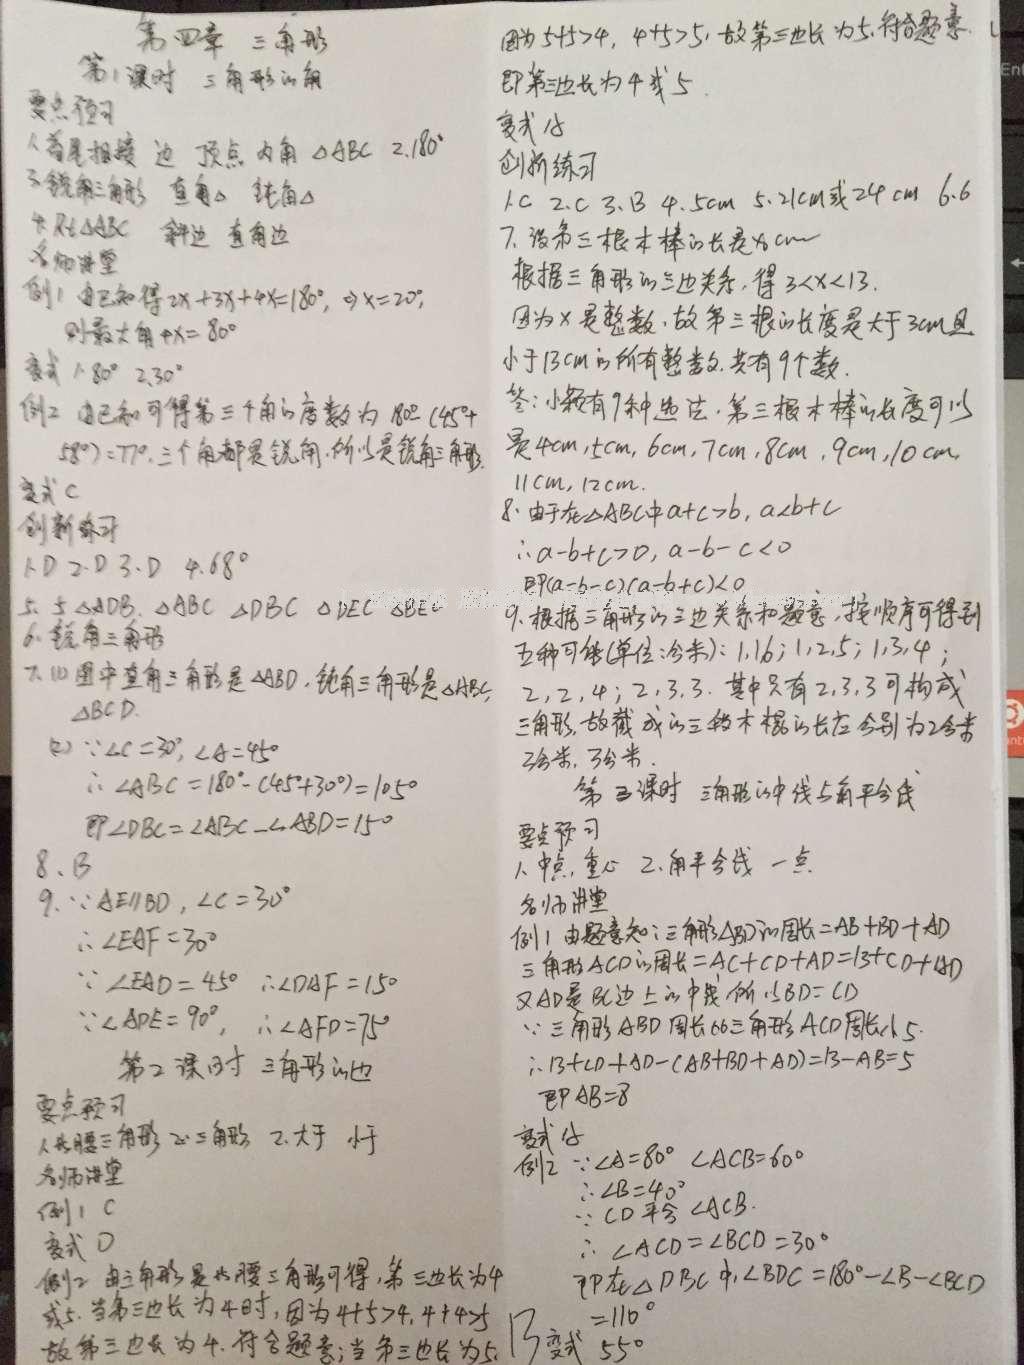 第四章 三角形
第1课时 三角形的角
要点预习
1.首尾相接 边 顶点 内角 △ABC 2.180°
3.锐角三角形 直角△ 钝角△
4.Rt△ABC 斜边 直角边
名师讲堂
例1 由已知得2x+3x+4x=180°,⇒x=20°,
则最大角4x=80°
变式 1.80° 2.30°
例2 由已知可得第三个角的度数为180°-(45°+
58°)=77°.三个角都是锐角.所以是锐角三角形.
变式 C
创新练习
1.D 2.D 3.D 4.68°
5. 5 △ADB. △ABC △DBC △DEC △BEC
6. 锐角三角形
7.(1)图中直角三角形是△ABD.钝角三角形是△ABC,
△BCD.
(2)∵∠C=30°,∠A=45°
∴∠ABC=180°-(45°+30°)=105°
即∠DBC=∠ABC-∠ABD=15°
8、B
9.∵AE∥BD,∠C=30°
∴∠EAF=30°
∵∠EAD=45° ∴∠DAF=15°
∵∠ADE=90°, ∴∠AFD=75°
第2课时 三角形的边
要点预习
1.等腰三角形 正三角形 2.大于 小于
名师讲堂
例1 C
变式 D
例2 由三角形是等腰三角形可得,第三边长为4
或5.当第三边长为4时,因为4+5>4,4+4>5
故第三边长为4.符合题意;当第三边长为5,
因为5+5>4, 4+5>5,故第三边长为5,符合题意.
即第三边长为4或5.
变式 15
创新练习
1.C 2.C 3.B 4.5cm 5.21cm或24cm 6.6
7.设第三根木棒的长是xcm
根据三角形的三边关系,得3<x<13.
因为x是整数,故第三根的长度是大于3cm且
小于13cm的所有整数.共有9个数.
答:小颖有9种选法.第三根木棒的长度可以
是4cm,5cm,6cm,7cm,8cm,9cm,10cm,
11cm,12cm.
8.由于在△ABC中a+c>b,a<b+c
∴a-b+c>0,a-b-c<0
即(a-b-c)(a-b+c)<0
9.根据三角形的三边关系和题意,按顺序可得到
五种可能(单位:分米):1,1,6;1,2,5;1,3,4;
2,2,4;2,3,3.其中只有2,3,3可构成
三角形,故截成的三段木棍的长应分别为2分米
3分米,3分米.
第3课时 三角形的中线与角平分线
要点预习
1.中点,重心 2.角平分线 一点
名师讲堂
例1 由题意知:三角形ABD的周长=AB+BD+AD
三角形ACD的周长=AC+CD+AD=13+CD+AD
又AD是BC边上的中线,所以BD=CD
∵三角形ABD周长比三角形ACD周长小5.
∴13+CD+AD-(AB+BD+AD)=13-AB=5
即AB=8
变式 15
例2 ∵∠A=80° ∠ACB=60°
∴∠B=40°
∵CD平分∠ACB.
∴∠ACD=∠BCD=30°
即在△DBC中,∠BDC=180°-∠B-∠BCD
=110°
变式 55°